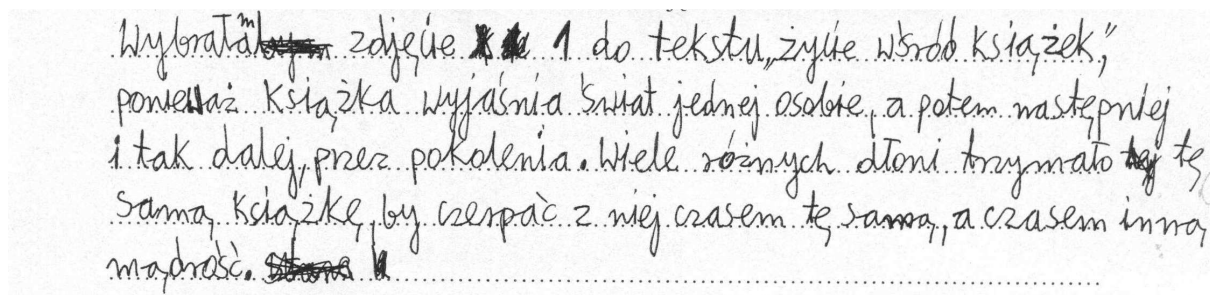 Wybrałam zdjęcie 1 do tekstu „życie wśród książek”,
ponieważ książka wyjaśnia świat jednej osobie, a potem następniej
i tak dalej, przez pokolenia. Wiele różnych dłoni trzymało tę
samą książkę, by czerpać z niej czasem tę samą, a czasem inną
mądrość.